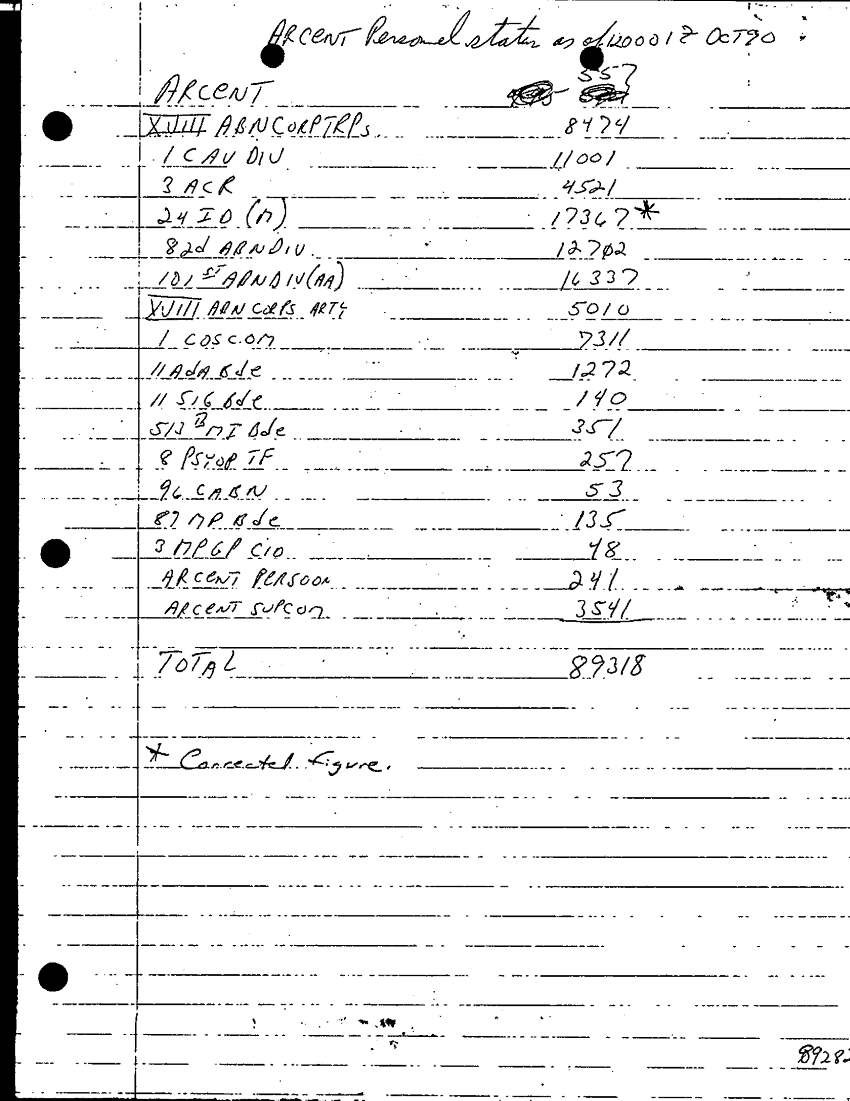 ARCENT Personel status as of 120001Z OCT90
557
ARCENT
XVIII ABN CORP TRPs 8474
1 CAV DIV 11001
3 ACR 4521
24 ID (M) 17367*
82d ABN DIV 12702
101ST ABN DIV (AA) 16337
XVIII ABN CORPS ARTY 5010
1 COSCOM 7311
11 AdA Bde 1272
11 SIG Bde 140
513 MI Bde 351
8 PSYOP TF 257
96 CA BN 53
89 MP Bde 135
3 MP GP CID 48
ARCENT PERSCOM 241
ARCENT SUPCOM 3541
TOTAL 89318
* Corrected figure.
89282